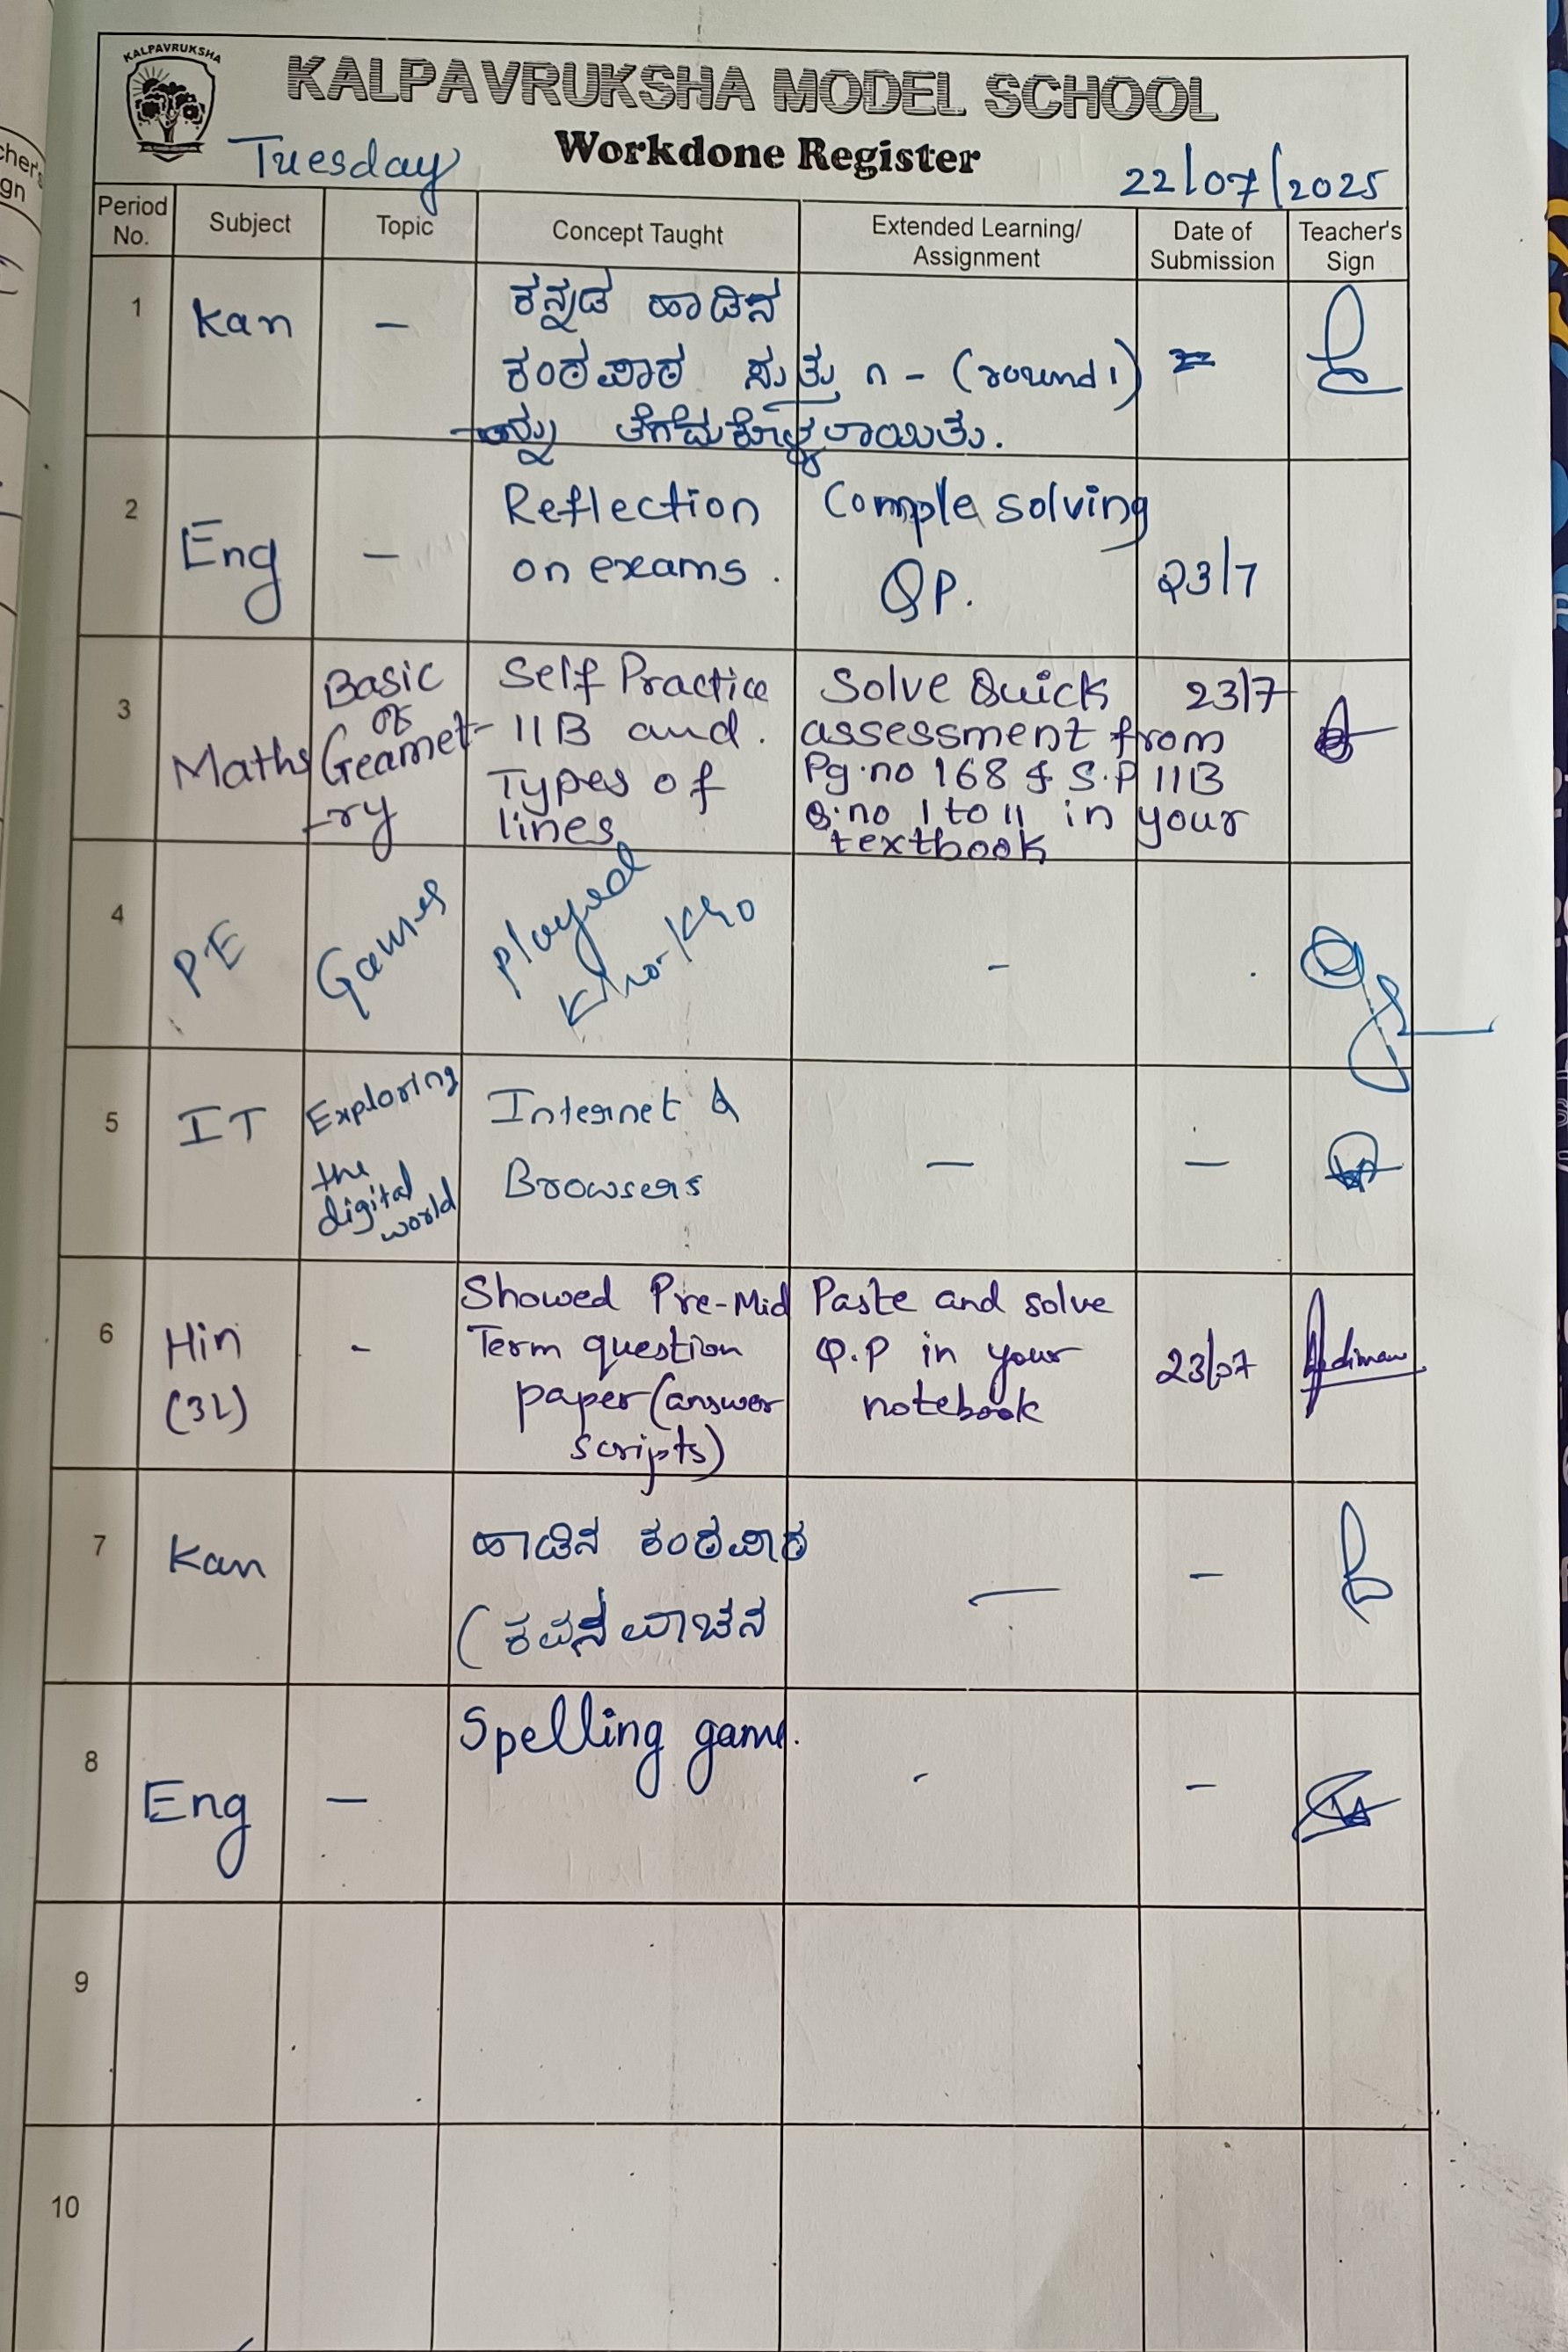 KALPAVRUKSHA
KALPAVRUKSHA MODEL SCHOOL
Workdone Register
Tuesday
22/07/2025
Period No. Subject Topic Concept Taught Extended Learning/ Assignment Date of Submission Teacher's Sign
1 Kan - ಕನ್ನಡ ಹಾಡಿನ
ಕಂಠಪಾಠ ಸುತ್ತು ೧ - (round 1)
ತೆಗೆದುಕೊಳ್ಳಲಾಯಿತು.
2 Eng - Reflection Comple solving
on exams. QP. 23/7
3 Maths Basic Self Practice Solve Quick 23/7
of 11B and. assessment from
Geamet- Types of Pg.no 168 & S.P 11B
-ry lines Q.no 1 to 11 in your
textbook
4 PE Games played
Kho-Kho -
5 IT Exploring Internet &
the Browsers - -
digital
world
6 Hin Showed Pre-Mid Paste and solve
(3L) - Term question Q.P in your 23/07
paper (answer notebook
scripts)
7 Kan ಹಾಡಿನ ಕಂಠಪಾಠ - -
(ಕವನ ವಾಚನ
8 Eng - Spelling game. - -
9
10